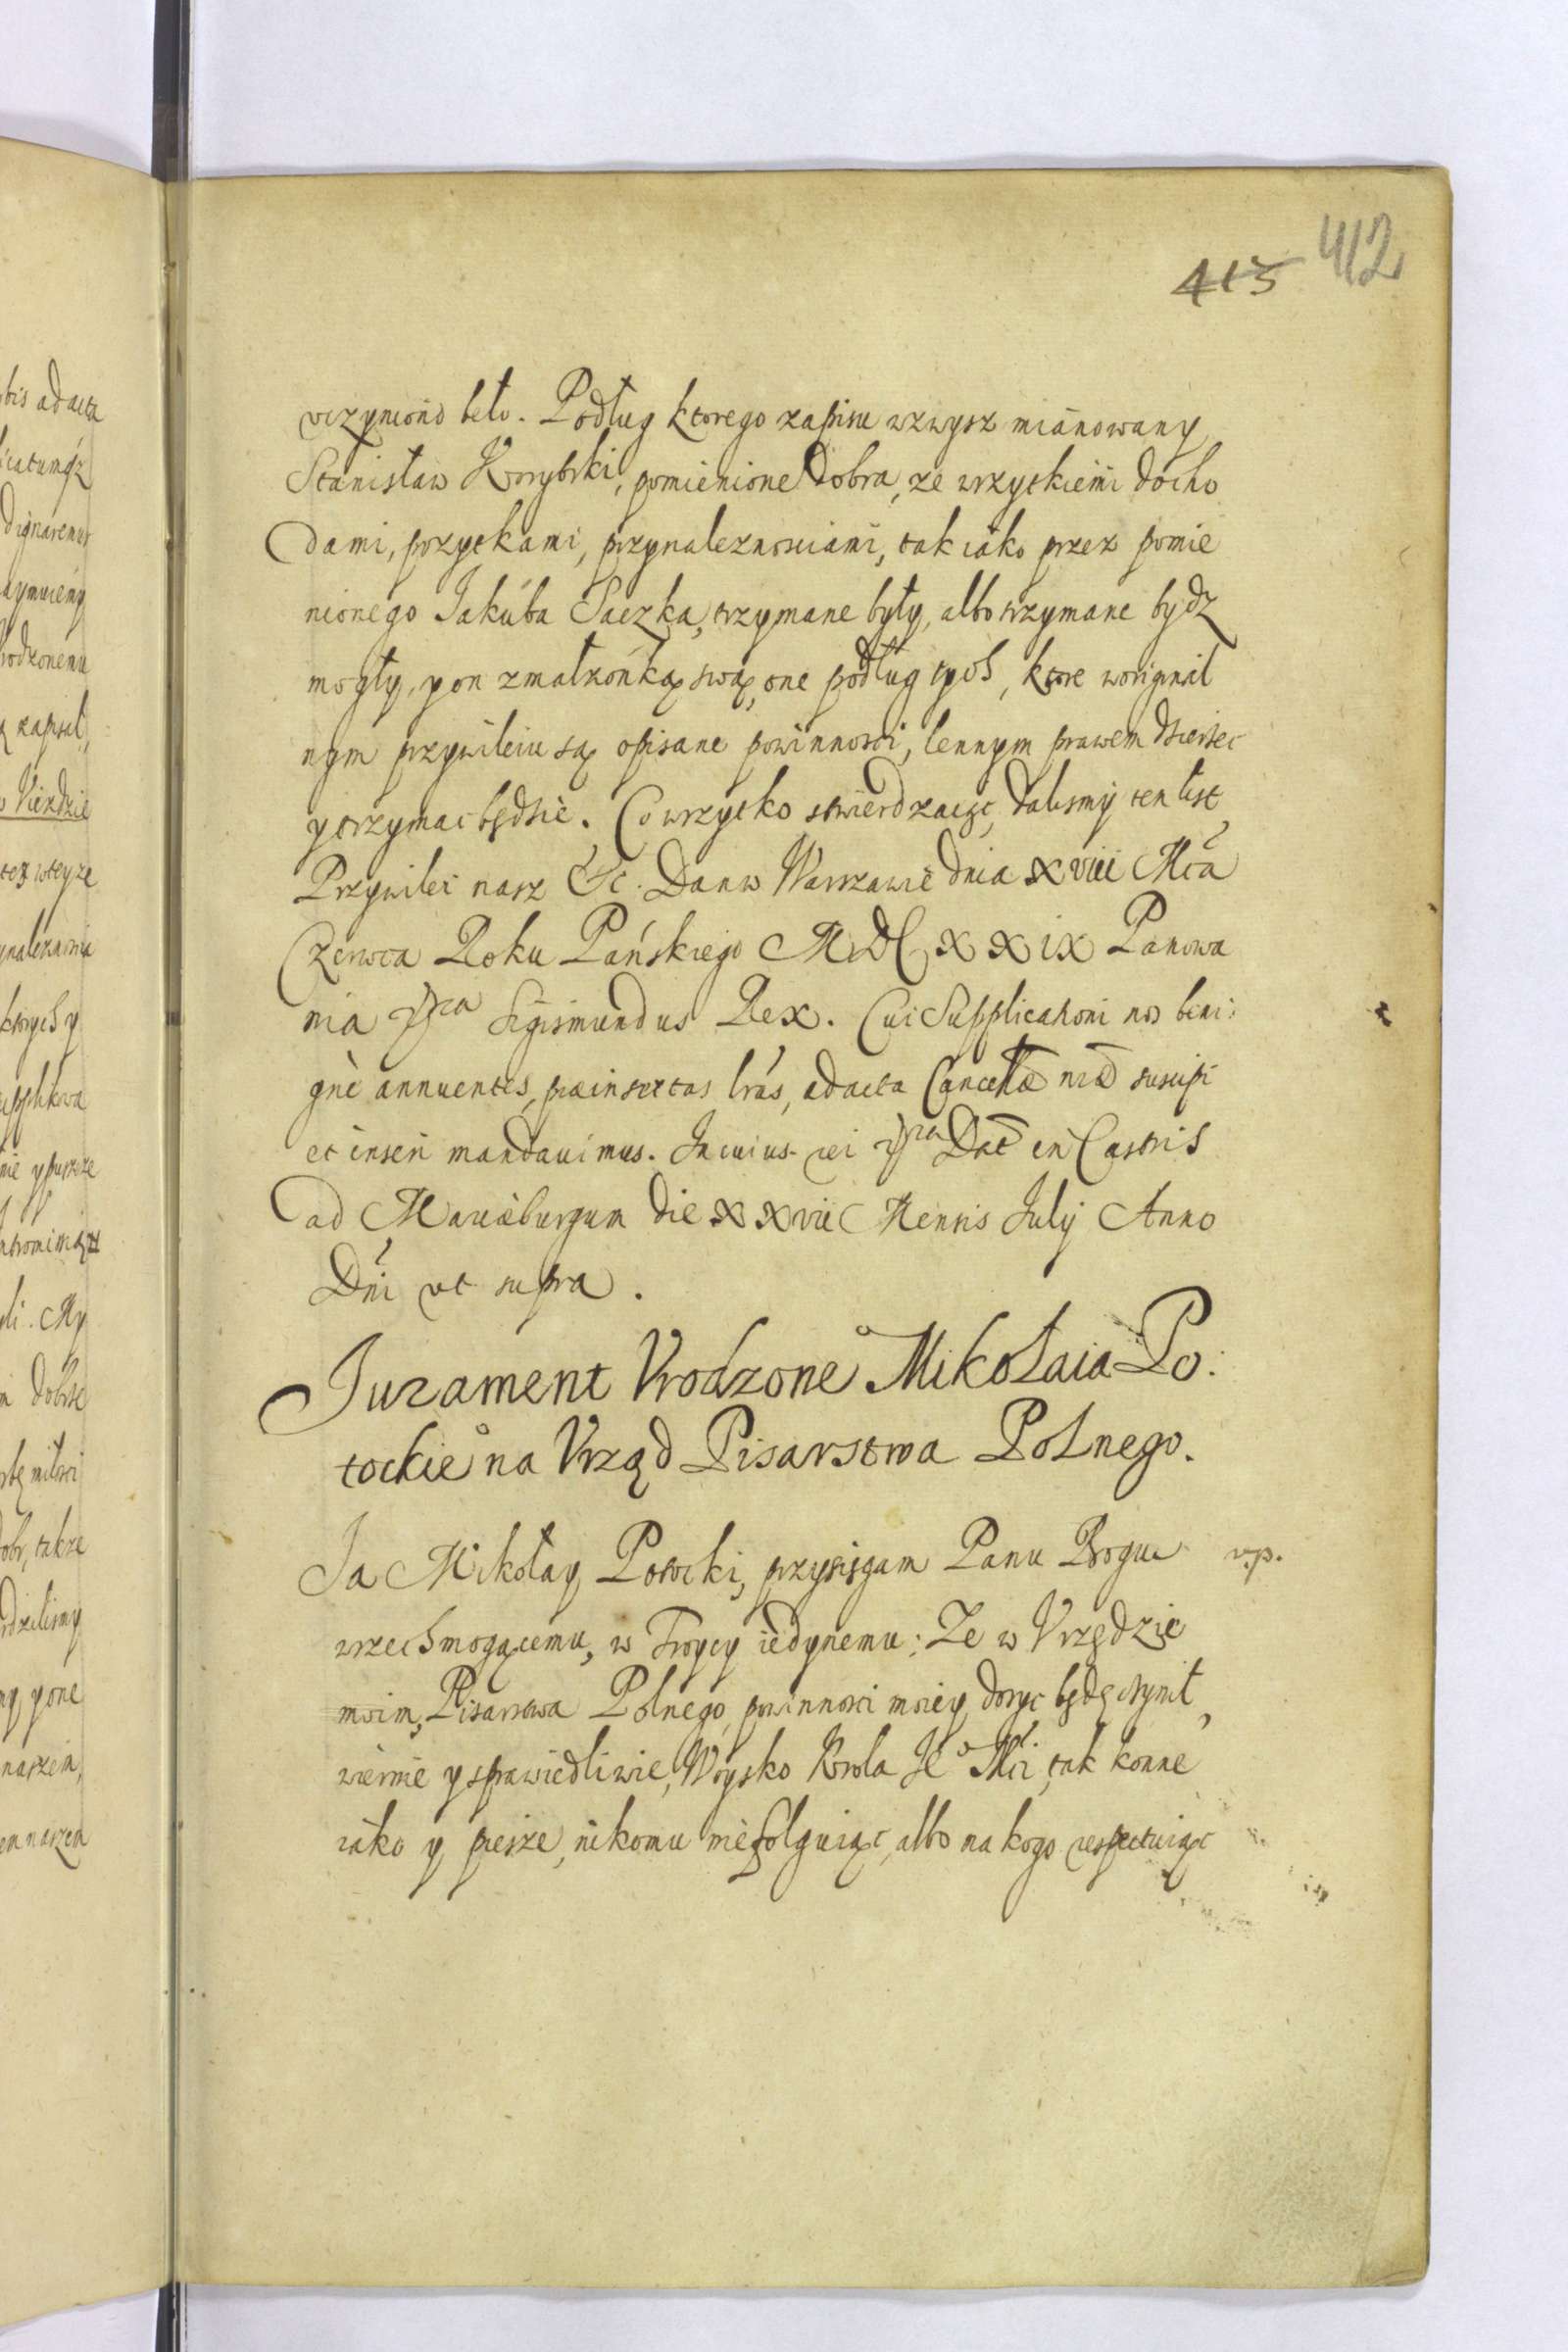 413 412
vczyniono beło. Podług ktorego zapisu wzwysz mianowany
Stanisław Korybski, pomienione dobra, ze wszytkiemi docho
dami, pozytkami, przynaleznosciami, tak iako przez pomie
nionego Jakuba Saczka, trzymane były, albo trzymane bydz
mogły, y on z małzonką swą, one podług tych, ktore w original
nym przywileiu są opisane powinnosci, lennym prawem dzierzec
y trzymac będzie. Co wszytko stwierdzaiąc, dalismy ten list
Przywilei nasz &c. Dan w Warszawie dnia xviii Mca
Czerwca Roku Pańskiego MDCxxix Panowa
nia Sigismundus Rex. Cui Supplicationi nos beni:
gnè annuentes, præinsertas lras, ad acta Cancellæ nræ suscipi
et inseri mandauimus. In cuius rei Dat in Castris
ad Mariæburgum die xxvii Mensis July Anno
Dni vt supra.
Jurament Vrodzone° Mikołaia Po:
tockie° na Vrząd Pisarstwa Polnego.
Ja Mikołay Potocki, przysięgam Panu Bogu v.p.
wszechmogącemu, w Troycy iedynemu: Ze w Vrzędzie
moim, Pisarstwa Polnego, powinnosci moiey dosyc będę czynił,
wiernie y sprawiedliwie, Woysko Krola Je° Mci, tak konne
iako y piesze, nikomu niefolguiąc, albo na kogo respectuiąc
bis ad acta
dignaremur
aymuiemy
rodzonemu
zapisał,
w Vierdzie
też wteyze
ktorych y
nie y puszcze
li. My
m dobrze
dobr, takze
rdzilismy
y one
naszem,
em naszem